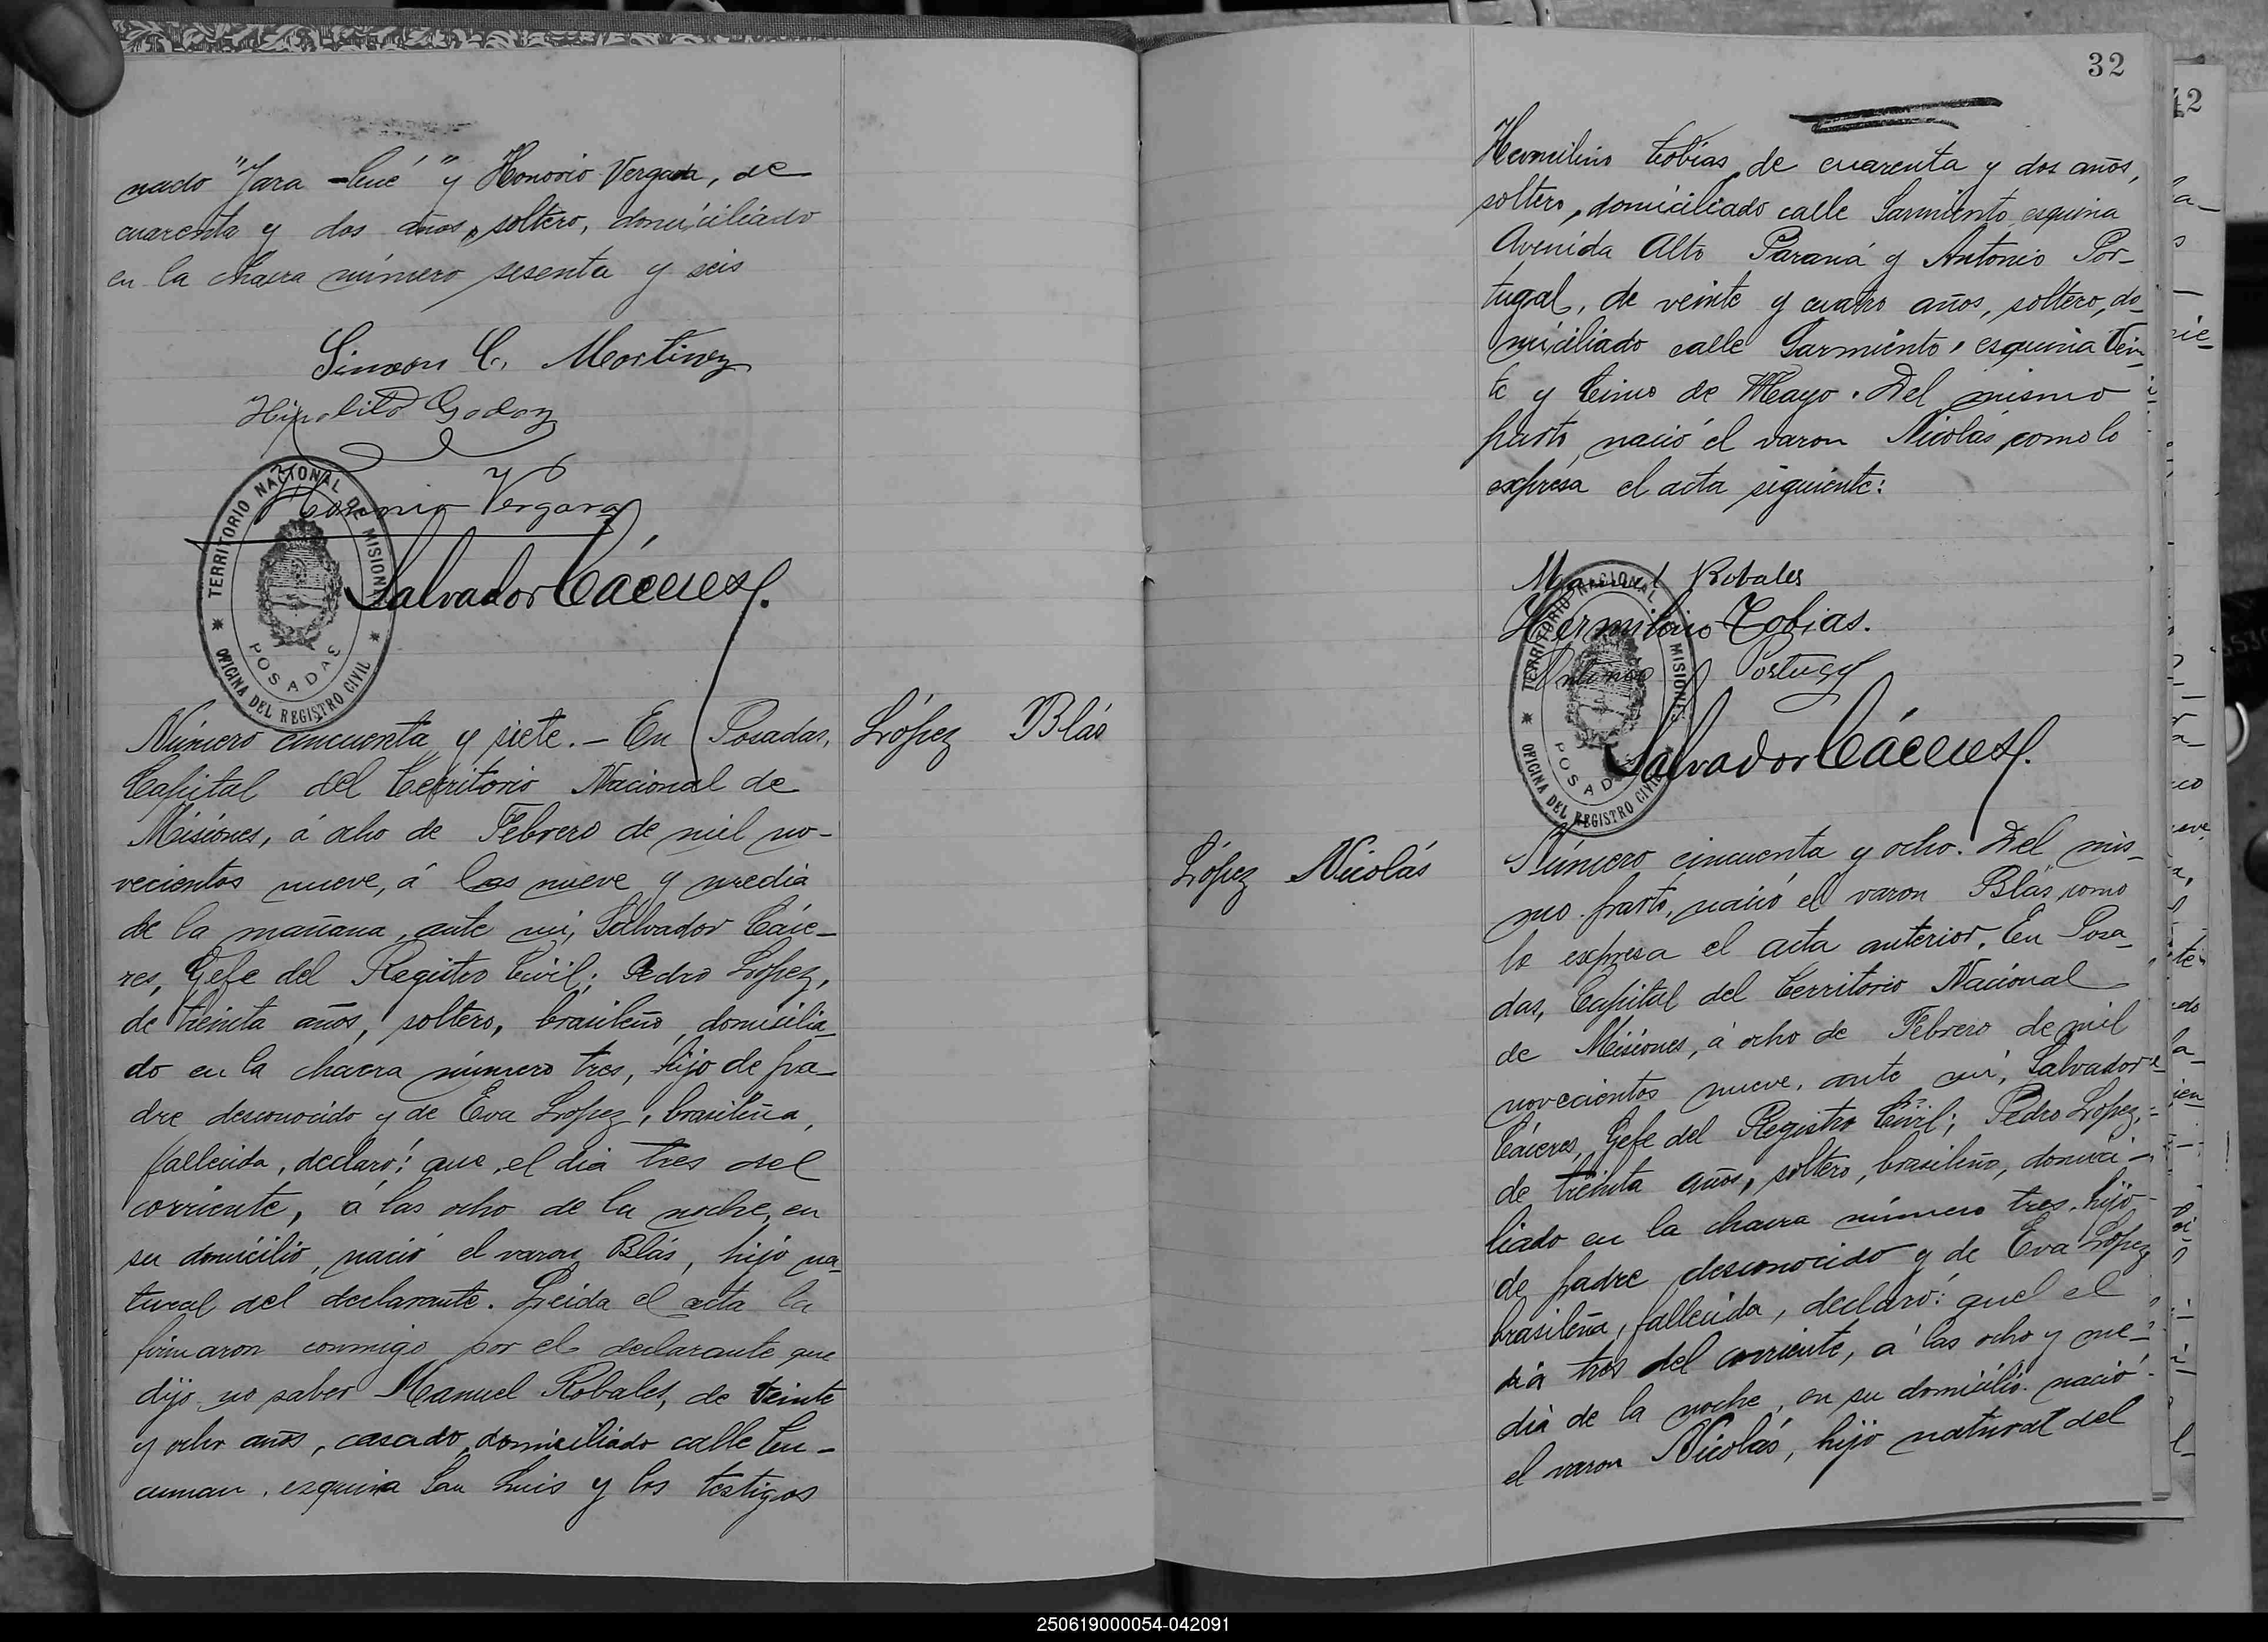 nado "Jara-Cué" y Honorio Vergara, de
cuarenta y dos años, soltero, domiciliado
en la chacra número sesenta y seis
Simeon C. Martinez
Hipolito Godoy
Honorio Vergara
Salvador Cáceres.
TERRITORIO NACIONAL DE MISIONES
POSADAS
OFICINA DEL REGISTRO CIVIL
Número cincuenta y siete.- En Posadas,
Capital del Territorio Nacional de
Misiones, á ocho de Febrero de mil no-
vecientos nueve, á las nueve y media
de la mañana, ante mi, Salvador Cáce-
res, Gefe del Registro Civil; Pedro López,
de treinta años, soltero, brasileño, domicilia-
do en la chacra número tres, hijo de pa-
dre desconocido y de Eva López, brasileña,
fallecida, declaró: que, el dia tres del
corriente, á las ocho de la noche, en
su domicilio, nació el varon Blás, hijo na-
tural del declarante. Leida el acta la
firmaron conmigo por el declarante que
dijo no saber Manuel Robales, de veinte
y ocho años, casado, domiciliado calle Tu-
cuman, esquina San Luis y los testigos
López Blás
32
Hermilino Tobias, de cuarenta y dos años,
soltero, domiciliado calle Sarmiento esquina
Avenida Alto Paraná y Antonio Por-
tugal, de veinte y cuatro años, soltero, do-
miciliado calle Sarmiento, esquina Vein-
te y Cinco de Mayo. Del mismo
parto, nació el varon Nicolás, como lo
expresa el acta siguiente:
Manuel Robales
Hermilino Tobias.
Antonio Portugal
Salvador Cáceres.
TERRITORIO NACIONAL DE MISIONES
POSADAS
OFICINA DEL REGISTRO CIVIL
López Nicolás
Número cincuenta y ocho. Del mis-
mo parto, nació el varon Blás, como
lo expresa el acta anterior. En Posa-
das, Capital del Territorio Nacional
de Misiones, á ocho de Febrero de mil
novecientos nueve, ante mi, Salvador
Cáceres, Gefe del Registro Civil; Pedro López,
de treinta años, soltero, brasileño, domici-
liado en la chacra número tres, hijo
de padre desconocido y de Eva López
brasileña, fallecida, declaró: quel el
dia tres del corriente, á las ocho y me-
dia de la noche, en su domicilio nació
el varon Nicolás, hijo natural del
42
250619000054-042091